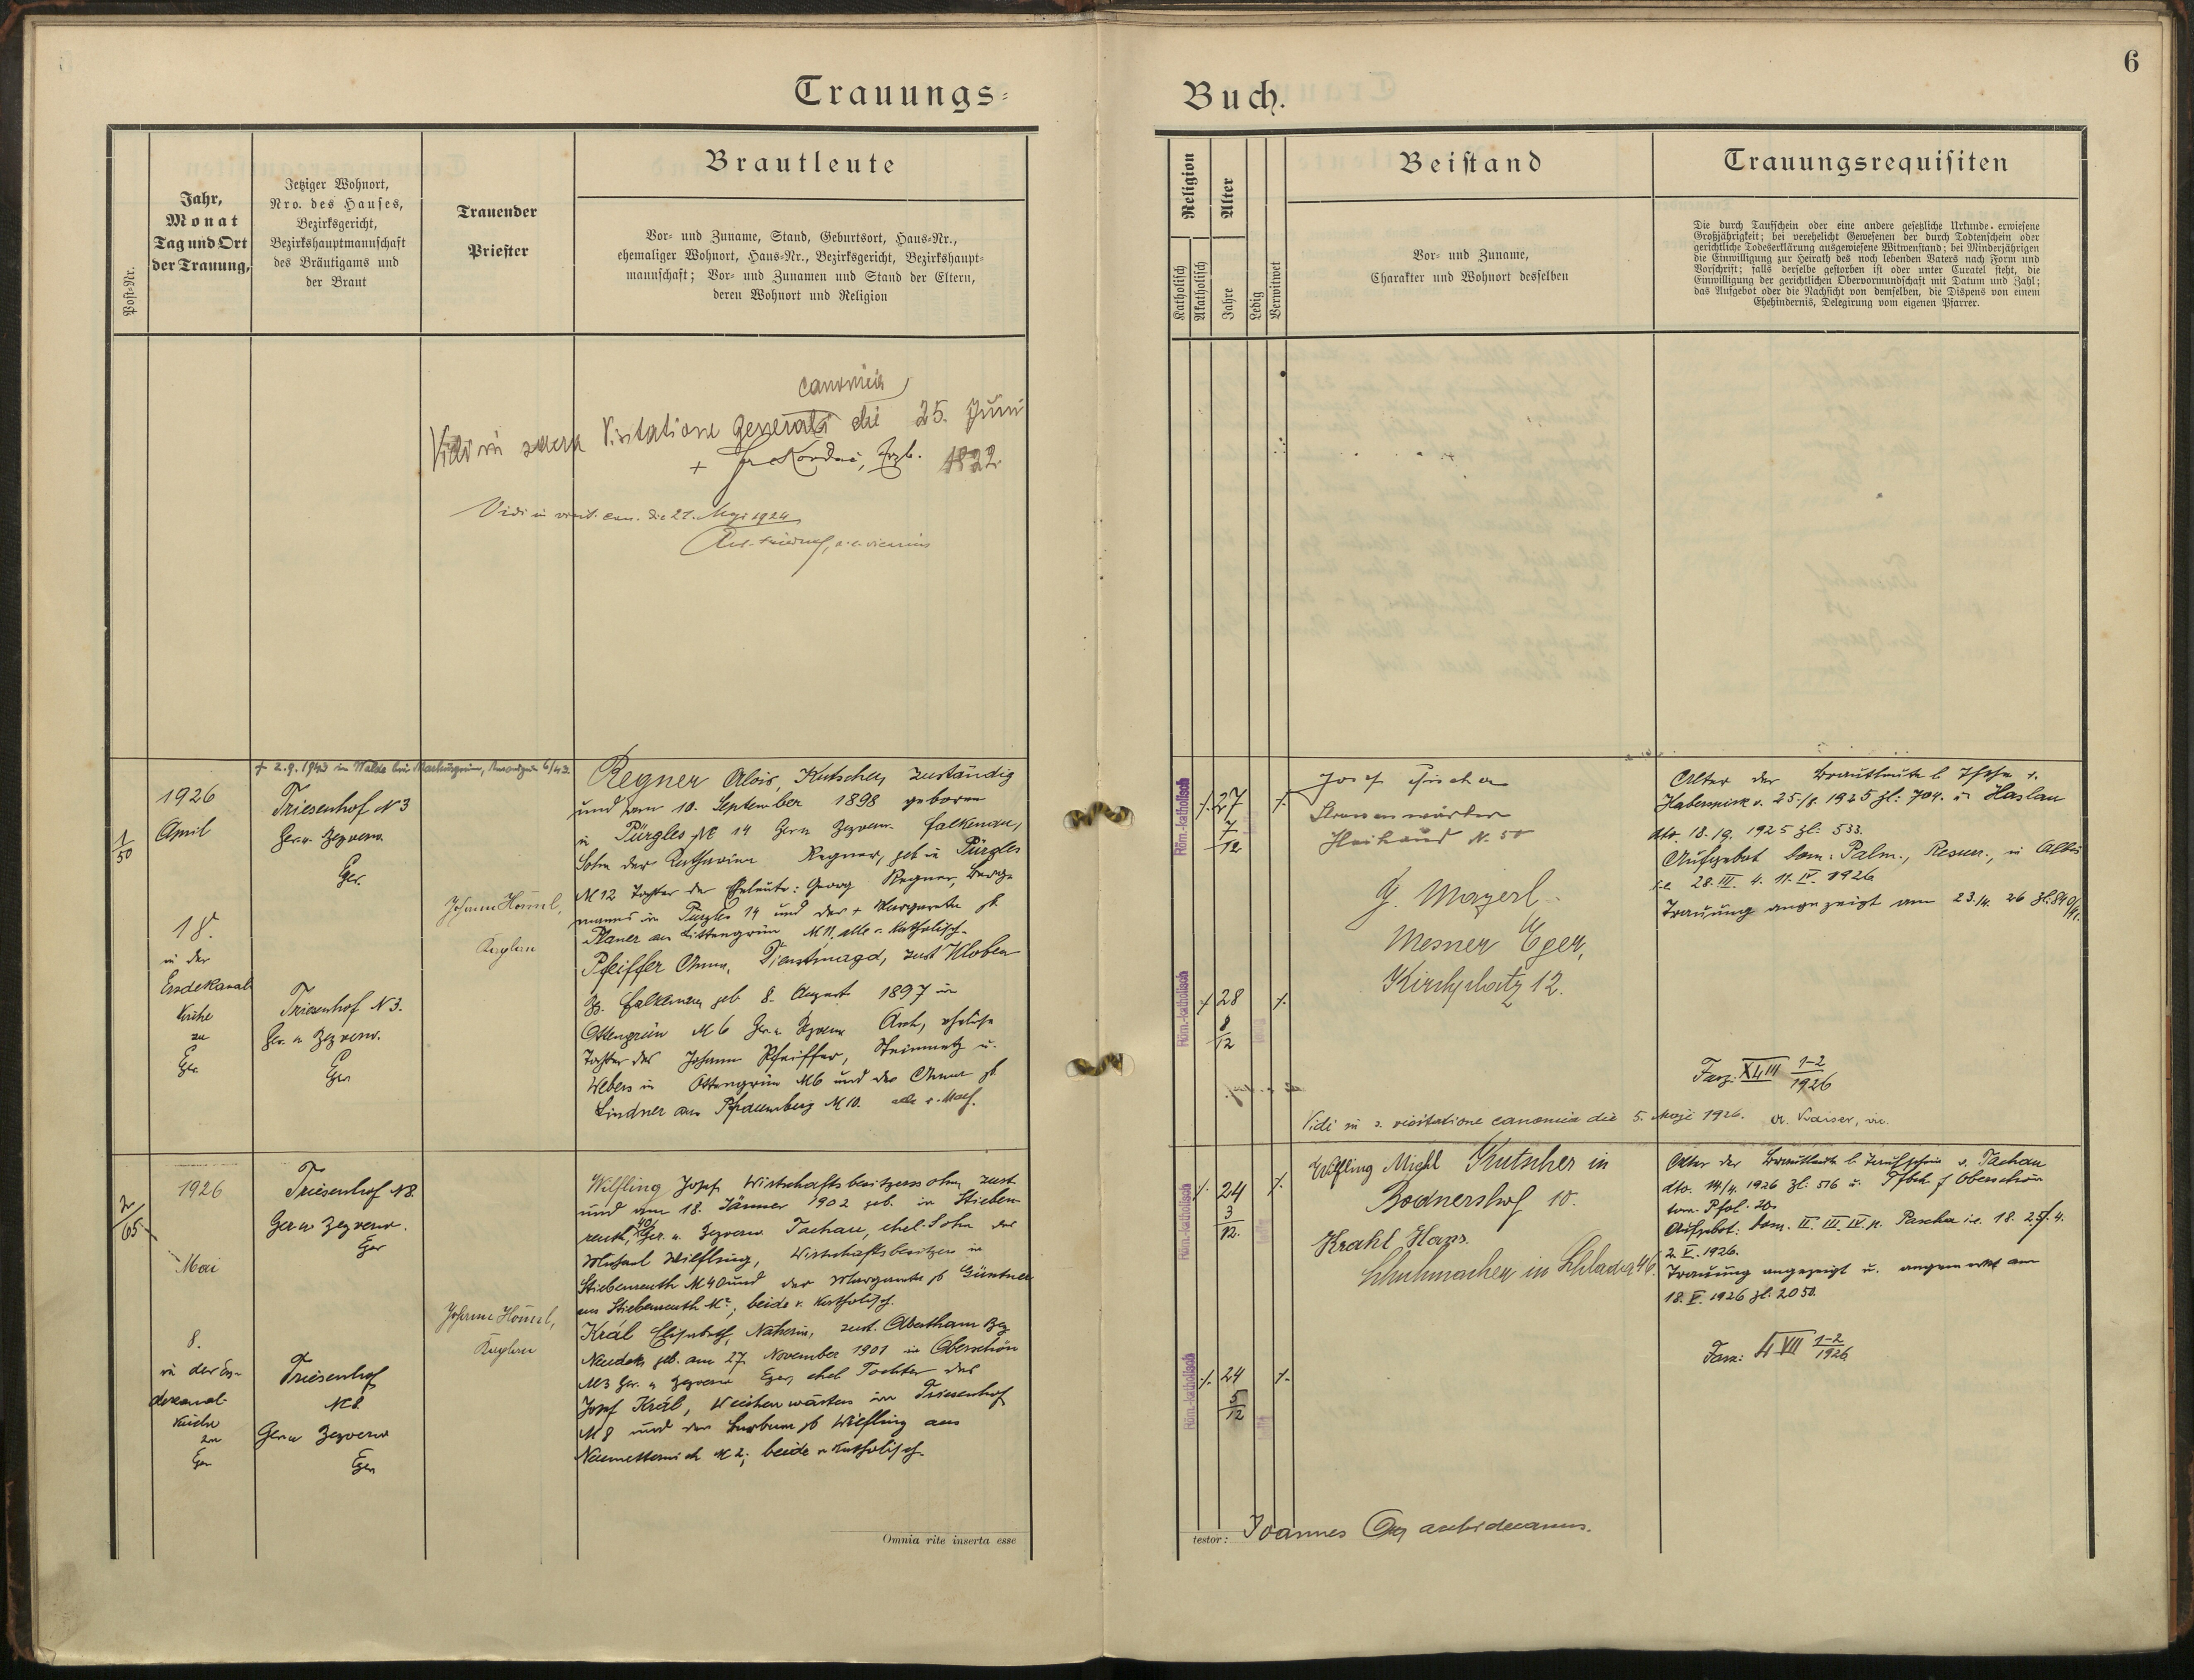 6
Trauungs-
Buch.
Post-Nr.
Jahr,
Monat
Tag und Ort
der Trauung,
Jetziger Wohnort,
Nro. des Hauses,
Bezirksgericht,
Bezirkshauptmannschaft
des Bräutigams und
der Braut
Trauender
Priester
Brautleute
Vor- und Zuname, Stand, Geburtsort, Haus-Nr.,
ehemaliger Wohnort, Haus-Nr., Bezirksgericht, Bezirkshaupt-
mannschaft; Vor- und Zunamen und Stand der Eltern,
deren Wohnort und Religion
canonica
Vidi in sacra Visitatione generali die 25. Juni
1922
Vidi in visit. can. die 21. Maji 1924
a.e. vicarius
1/50
1926
April
18.
in der
Erzdekanal
Kirche
zu
Eger
+ 2.9.1943 im Walde bei
Triesenhof N 3
Ger. u. Bezverw.
Eger
Triesenhof N 3.
Ger. u. Bezverw.
Eger
Johann Hommel,
Kaplan
Regner Alois, Kutscher, zuständig
und am 10. September 1898 geboren
in Pürgles N 14 Ger u Bezverw. Falkenau,
Sohn der Katharina Regner, geb in Pürgles
N 12 Tochter der Eheleute: Georg Regner, Berg-
manns in Pürgles 14 und der + Margareta gb.
Planer aus Littengrün N 11, alle r. katholisch.
Pfeiffer Anna, Dienstmagd, zust Kloben
Bz. Falkenau geb 8. August 1897 in
Ottengrün N 6 Ger u Bezverw Asch, eheliche
Tochter des Johann Pfeiffer, Steinmetz u.
Webers in Ottengrün N 6 und der Anna gb.
Lindner aus N 10. alle r. kath.
2/65
1926
Mai
8.
in der Erz-
dekanal-
kirche
zu
Eger
Triesenhof N 8
Ger u Bezverw.
Eger
Triesenhof
N 8.
Ger u Bezverw
Eger
Johann Hommel,
Kaplan
Wilfling Josef, Wirtschaftsbesitzerssohn, zust.
und am 18. Jänner 1902 geb. in Stieben-
reuth, 40 Ger. u. Bezverw Tachau, ehel. Sohn des
Michael Wilfling, Wirtschaftsbesitzers in
Stiebenreuth N 40 und der Margareta gb Güntner
aus Stiebenreuth N ?, beide r. katholisch.
Král Elisabeth, Näherin, zust. Abertham Bez
Neudek, geb. am 27. November 1901 in Oberschön
N 3 Ger. u Bezverw Eger, ehel Tochter des
Josef Král, Weichenwärters in Triesenhof
N 8 und der Barbara gb Wilfling aus
Neumetternich N 2; beide r. katholisch.
Omnia rite inserta esse
Religion
Katholisch
Akatholisch
Alter
Jahre
Ledig
Verwitwet
Beistand
Vor- und Zuname,
Charakter und Wohnort desselben
Trauungsrequisiten
Die durch Taufschein oder eine andere gesetzliche Urkunde erwiesene
Großjährigkeit; bei verehelicht Gewesenen der durch Todtenschein oder
gerichtliche Todeserklärung ausgewiesene Witwenstand; bei Minderjährigen
die Einwilligung zur Heirath des noch lebenden Vaters nach Form und
Vorschrift; falls derselbe gestorben ist oder unter Curatel steht, die
Einwilligung der gerichtlichen Obervormundschaft mit Datum und Zahl;
das Aufgebot oder die Nachsicht von demselben, die Dispens von einem
Ehehindernis, Delegirung vom eigenen Pfarrer.
Röm.-katholisch
27
7/12
Röm.-katholisch
28
8/12
Josef Fischer
Strassenwärter
N. 50
G. Mayerl.
Mesner Eger,
Kirchplatz 12.
Alter der Brautleute l. Tfsche v.
Haberspirk v. 25./8. 1925 Zl: 704. u. Haslau
dto. 18./9. 1925 Zl: 533.
Aufgebot Dom: Palm., Resurr., in Albis
i.e. 28. III. 4. 11. IV. 1926
Trauung angezeigt am 23./4. 26 Zl. 840
Fasz: XLIII 1-2/1926
Vidi in s. visitatione canonica die 5. Maji 1926. A. Kaiser, vic.
Röm.-katholisch
24
3/12.
Röm.-katholisch
24
5/12
Wilfling Michl Kutscher in
Bodnershof 10.
Krahl Hans.
Schuhmacher in Schlada 46.
Alter der Brautleute l. Taufschein v. Tachau
dto. 14/4. 1926 Zl: 516 u. Oberschön
tom. fol. 20.
Aufgebot: Dom. II. III. IV. p. Pascha i.e. 18. 25/4.
2. V. 1926.
Trauung angezeigt u. angemerkt am
18. V. 1926 Zl. 2050.
Fasz: LVII 1-2/1926
testor: Joannes archidecanus.